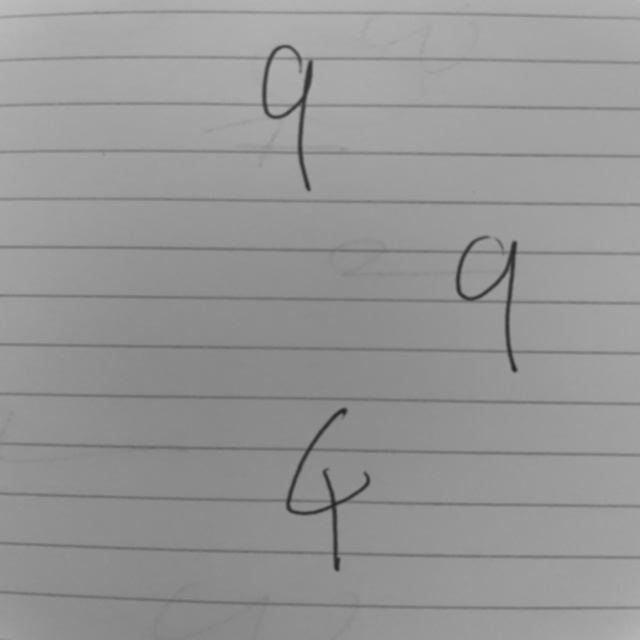 9
9
4